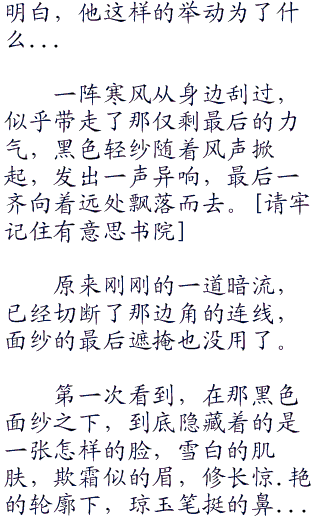 明白，他这样的举动为了什
么...
一阵寒风从身边刮过，
似乎带走了那仅剩最后的力
气，黑色轻纱随着风声掀
起，发出一声异响，最后一
齐向着远处飘落而去。[请牢
记住有意思书院]
原来刚刚的一道暗流，
已经切断了那边角的连线，
面纱的最后遮掩也没用了。
第一次看到，在那黑色
面纱之下，到底隐藏着的是
一张怎样的脸，雪白的肌
肤，欺霜似的眉，修长惊.艳
的轮廓下，琼玉笔挺的鼻...